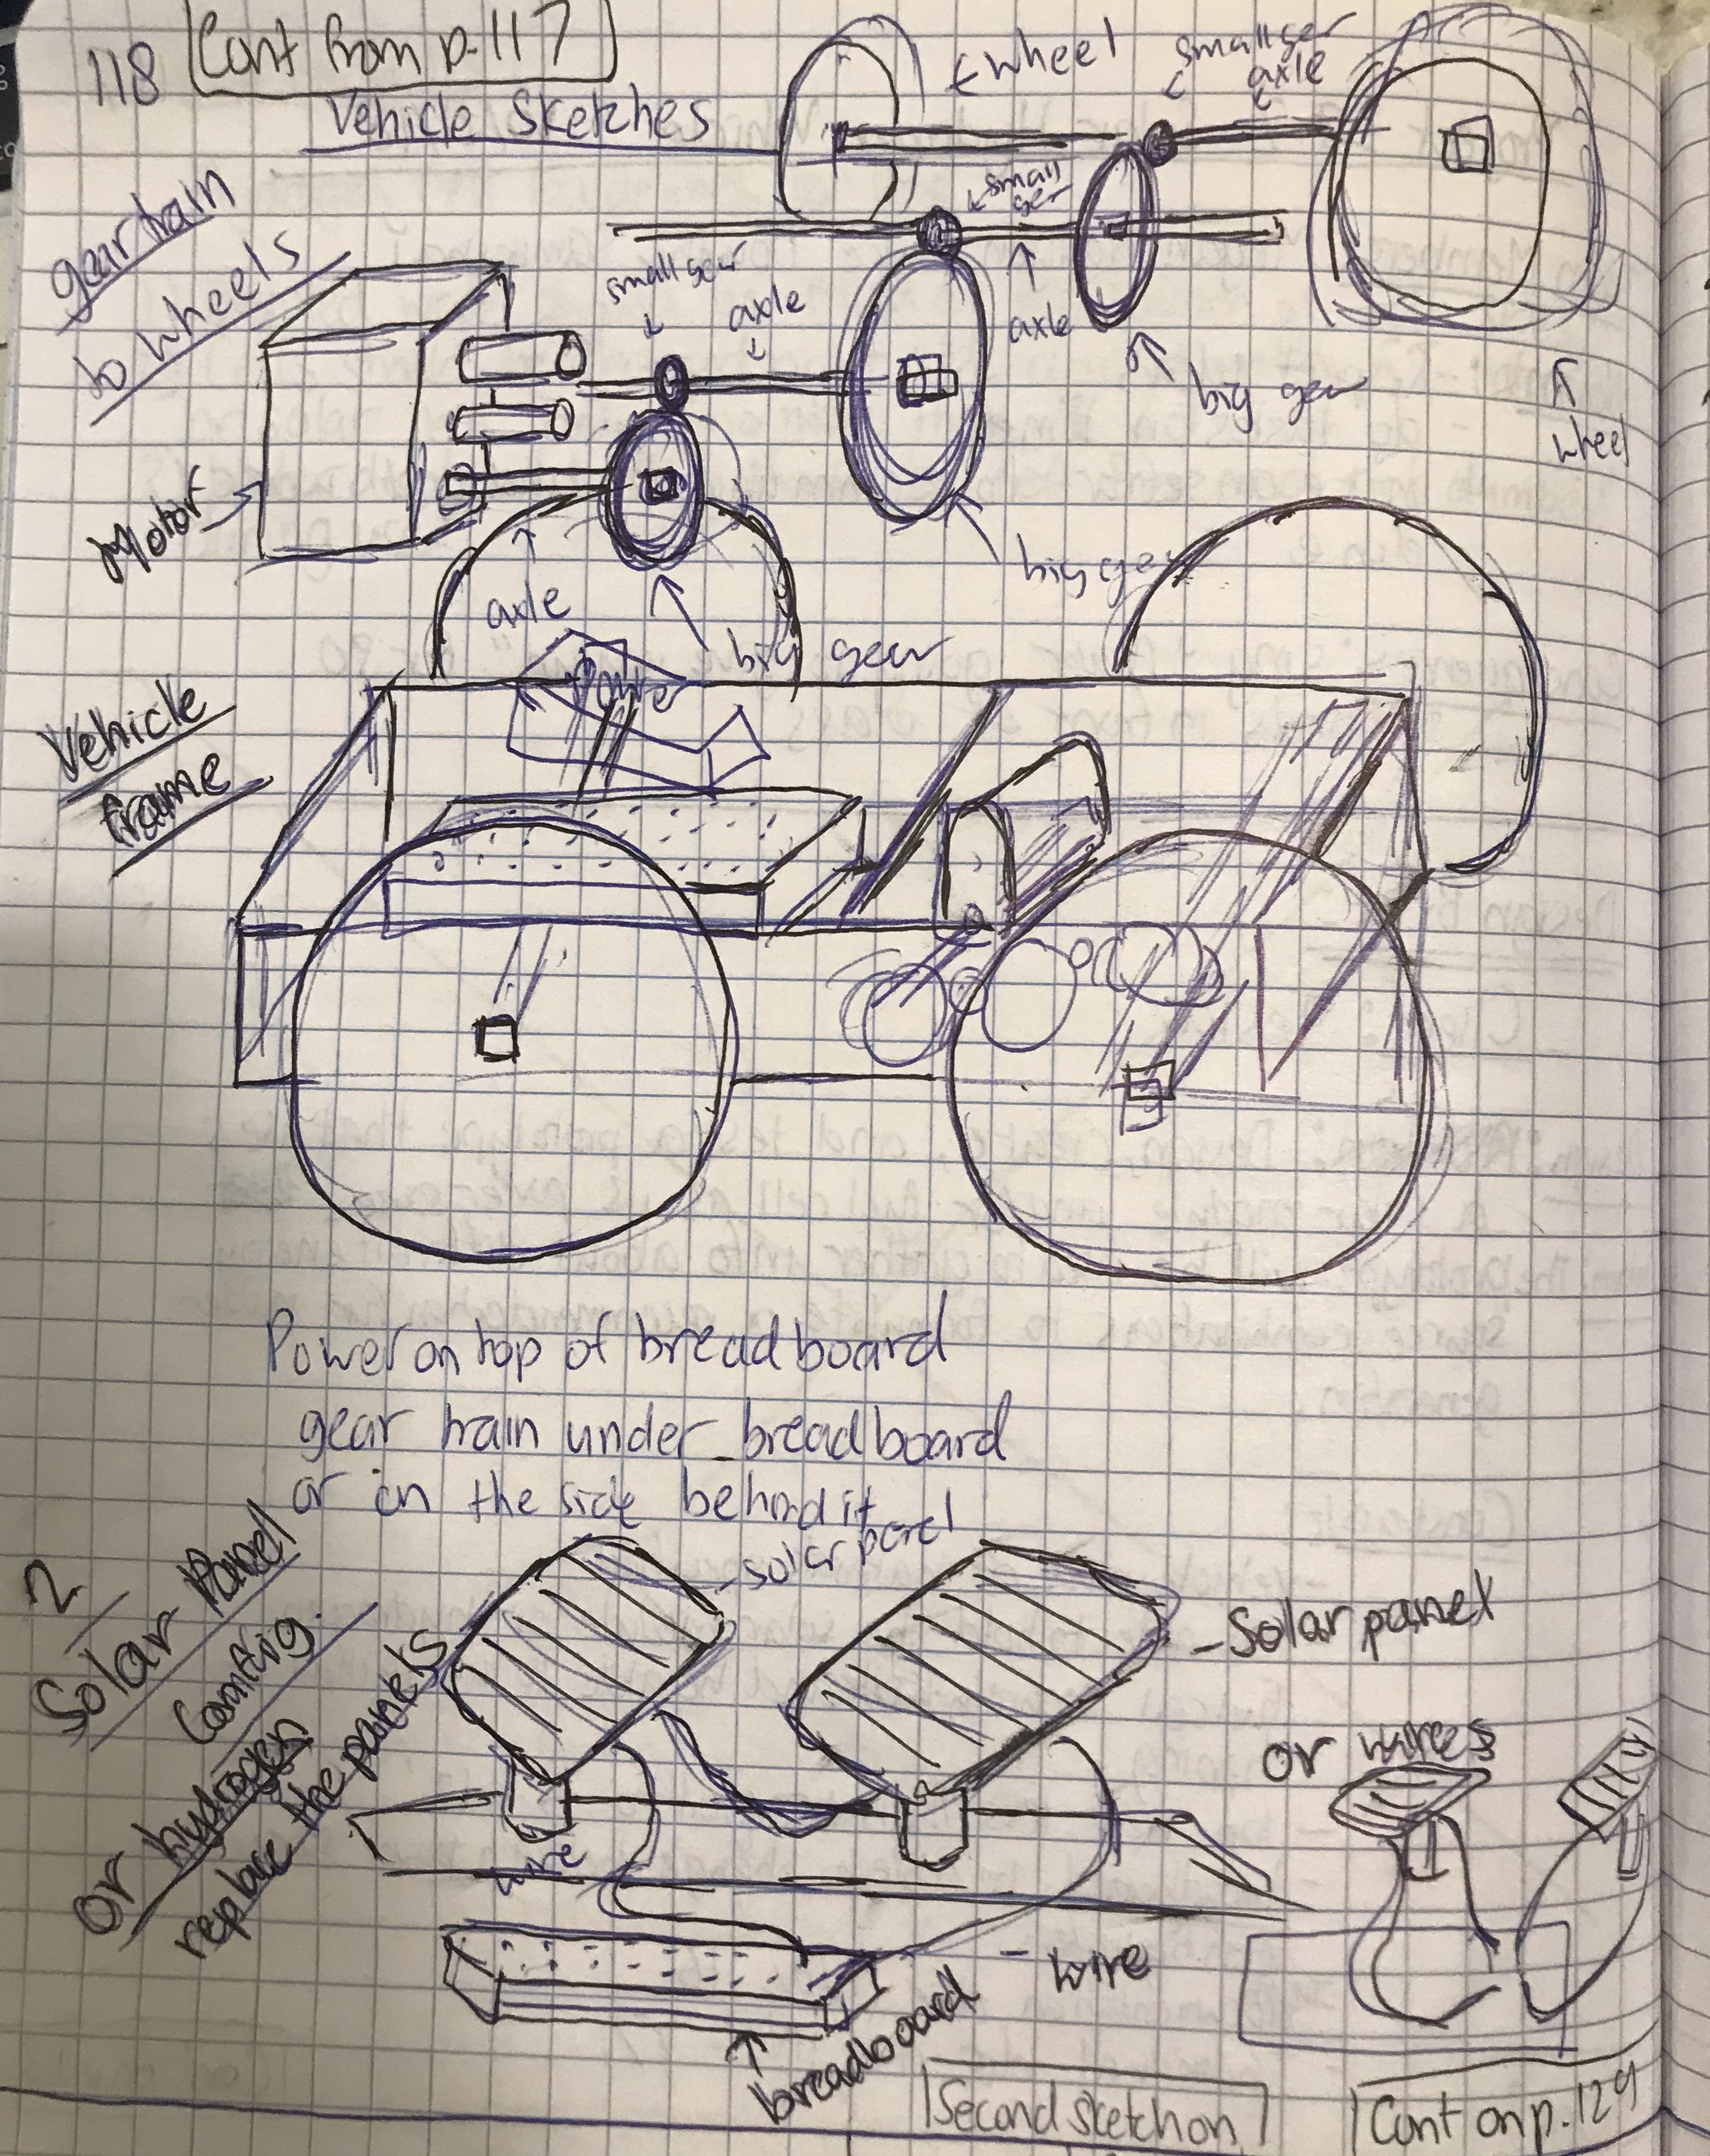 118
Cont from p.117
Vehicle Sketches
← wheel
small ger
axle
gear train
to wheels
small ger
small gear
axle
axle
big gear
wheel
Motor
big gear
axle
big gear
Vehicle
frame
Power on top of breadboard
gear train under breadboard
or in the side behind it
2
Solar Panel
Config.
or hydrogen
replace the panels
- solar panel
- Solar panel
or wires
wire
- wire
breadboard
Second sketch on
Cont on p. 129